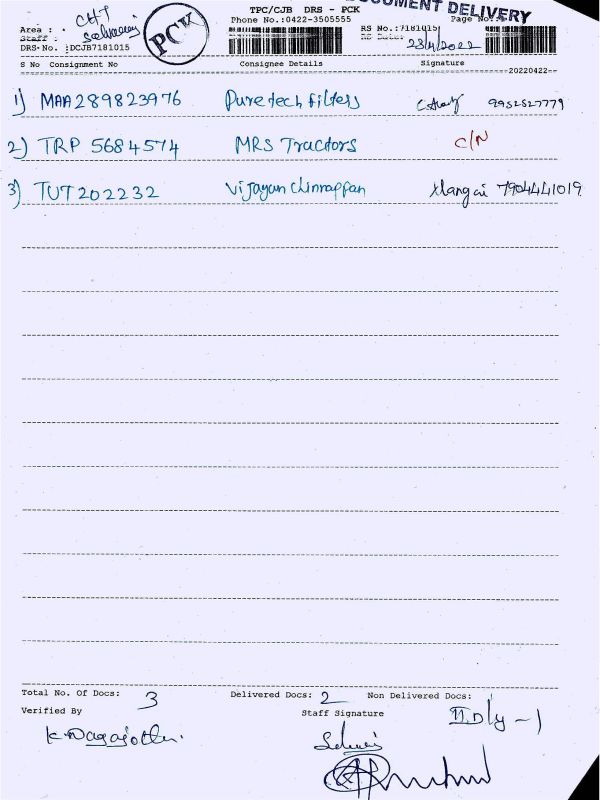 TPC/CJB DRS - PCK
DOCUMENT DELIVERY
Phone No.:0422-3505555
Page No.:
Area : CHT
Staff : Selvaraj
PCK
RS No.:7181015
RS Date: 23/4/2022
DRS-No. :DCJB7181015
S No Consignment No Consignee Details Signature
20220422
1) MAA289823976 Puretech filters 9952527779
2) TRP 5684574 MRS Tractors C/N
3) TUT202232 Vijayan Chinrappan Xlangai 7904441019
Total No. Of Docs: 3 Delivered Docs: 2 Non Delivered Docs:
Verified By Staff Signature